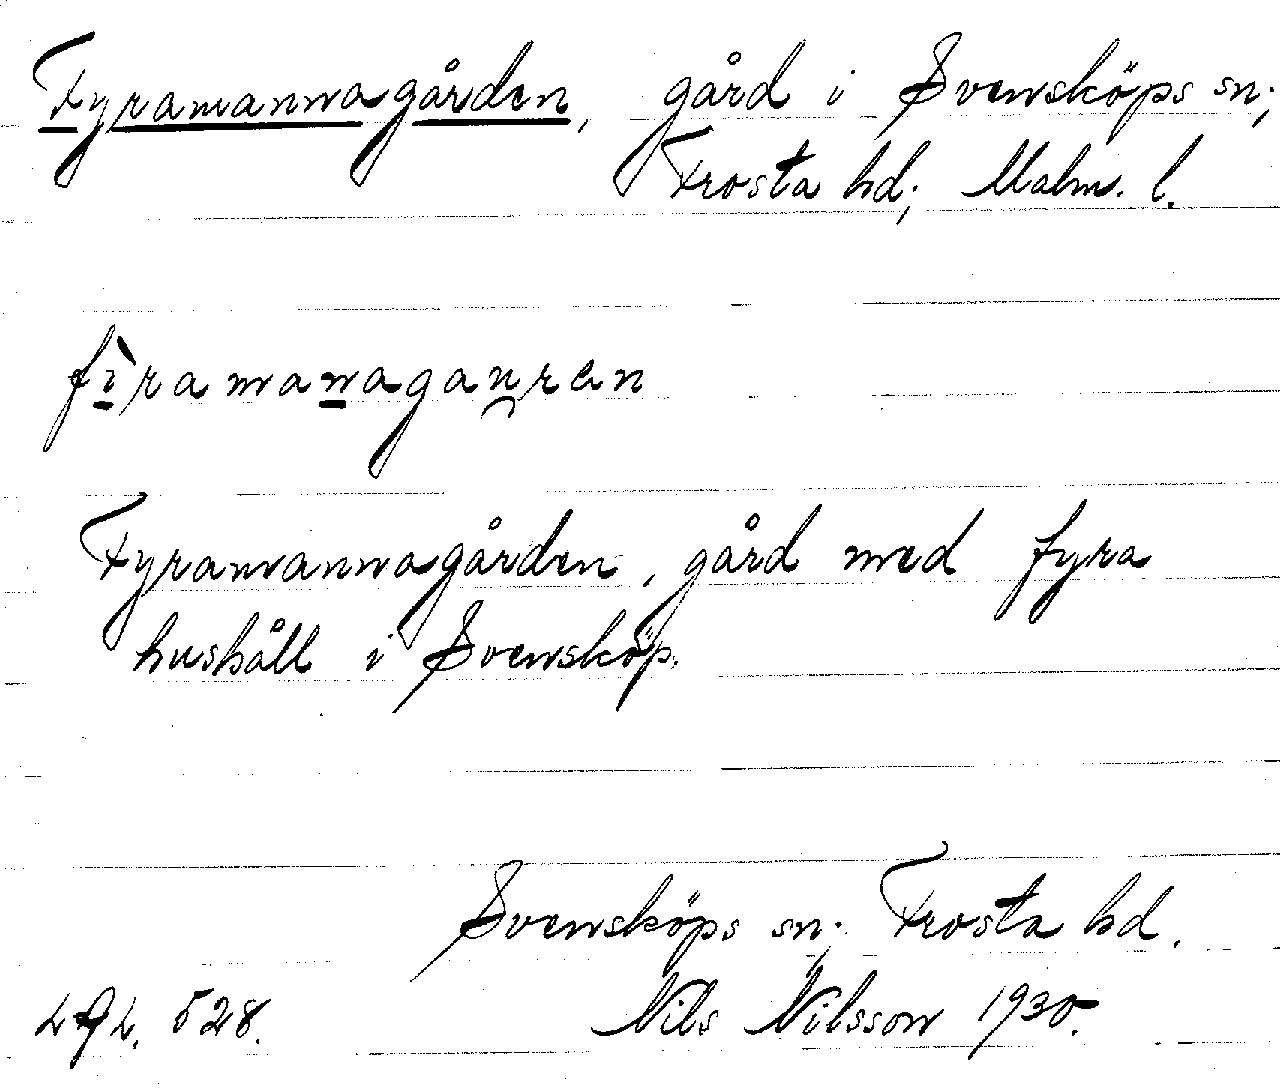 Fyramannagården, gård i Svensköps sn;
Frosta hd; Malm. l.
fìramanagau̯ren
Fyramannagården, gård med fyra
hushåll i Svensköp.
Svensköps sn; Frosta hd.
528. Nils Nilsson 1930.